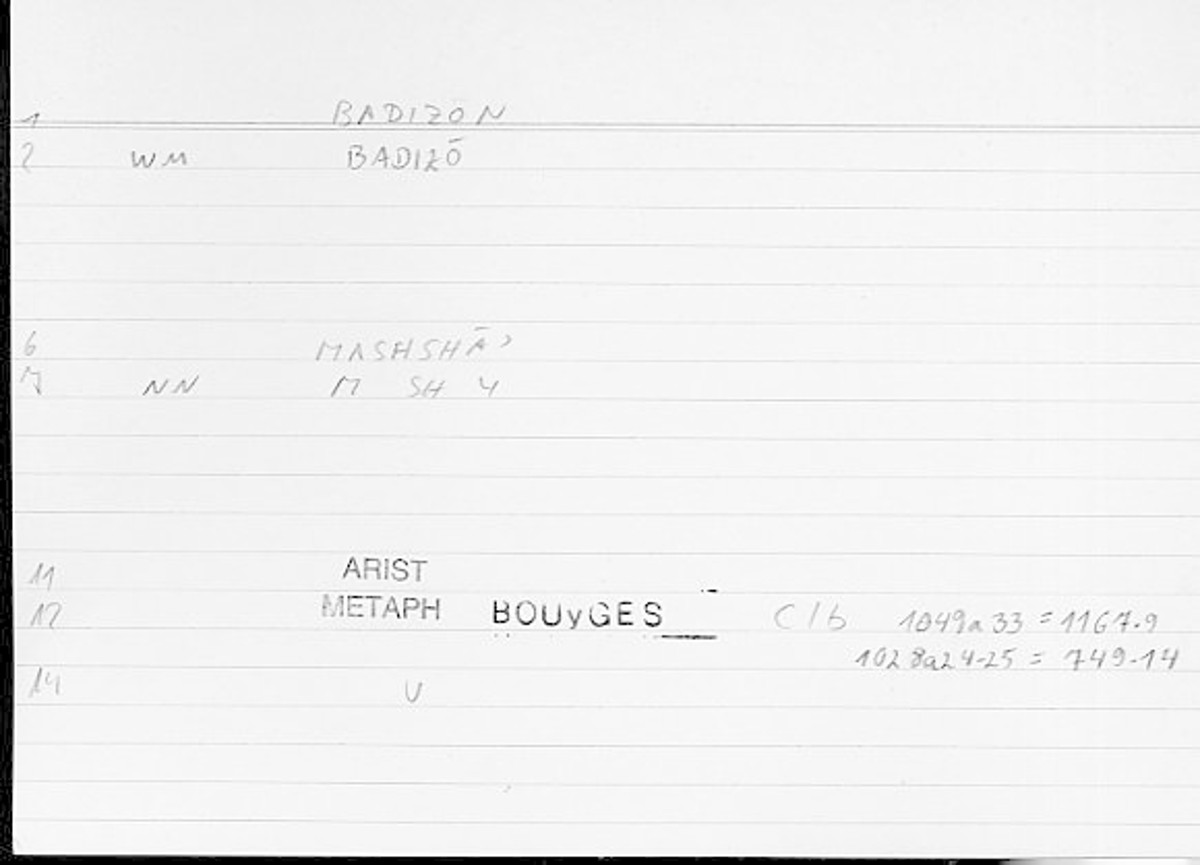 1 BADIZŌN
2 WM BADIZŌ
6 MASHSHĀʾ
7 NN M SH Y
11 ARIST
12 METAPH BOUyGES C/b 1049a33 = 1167.9
1028a24-25 = 749.14
14 U